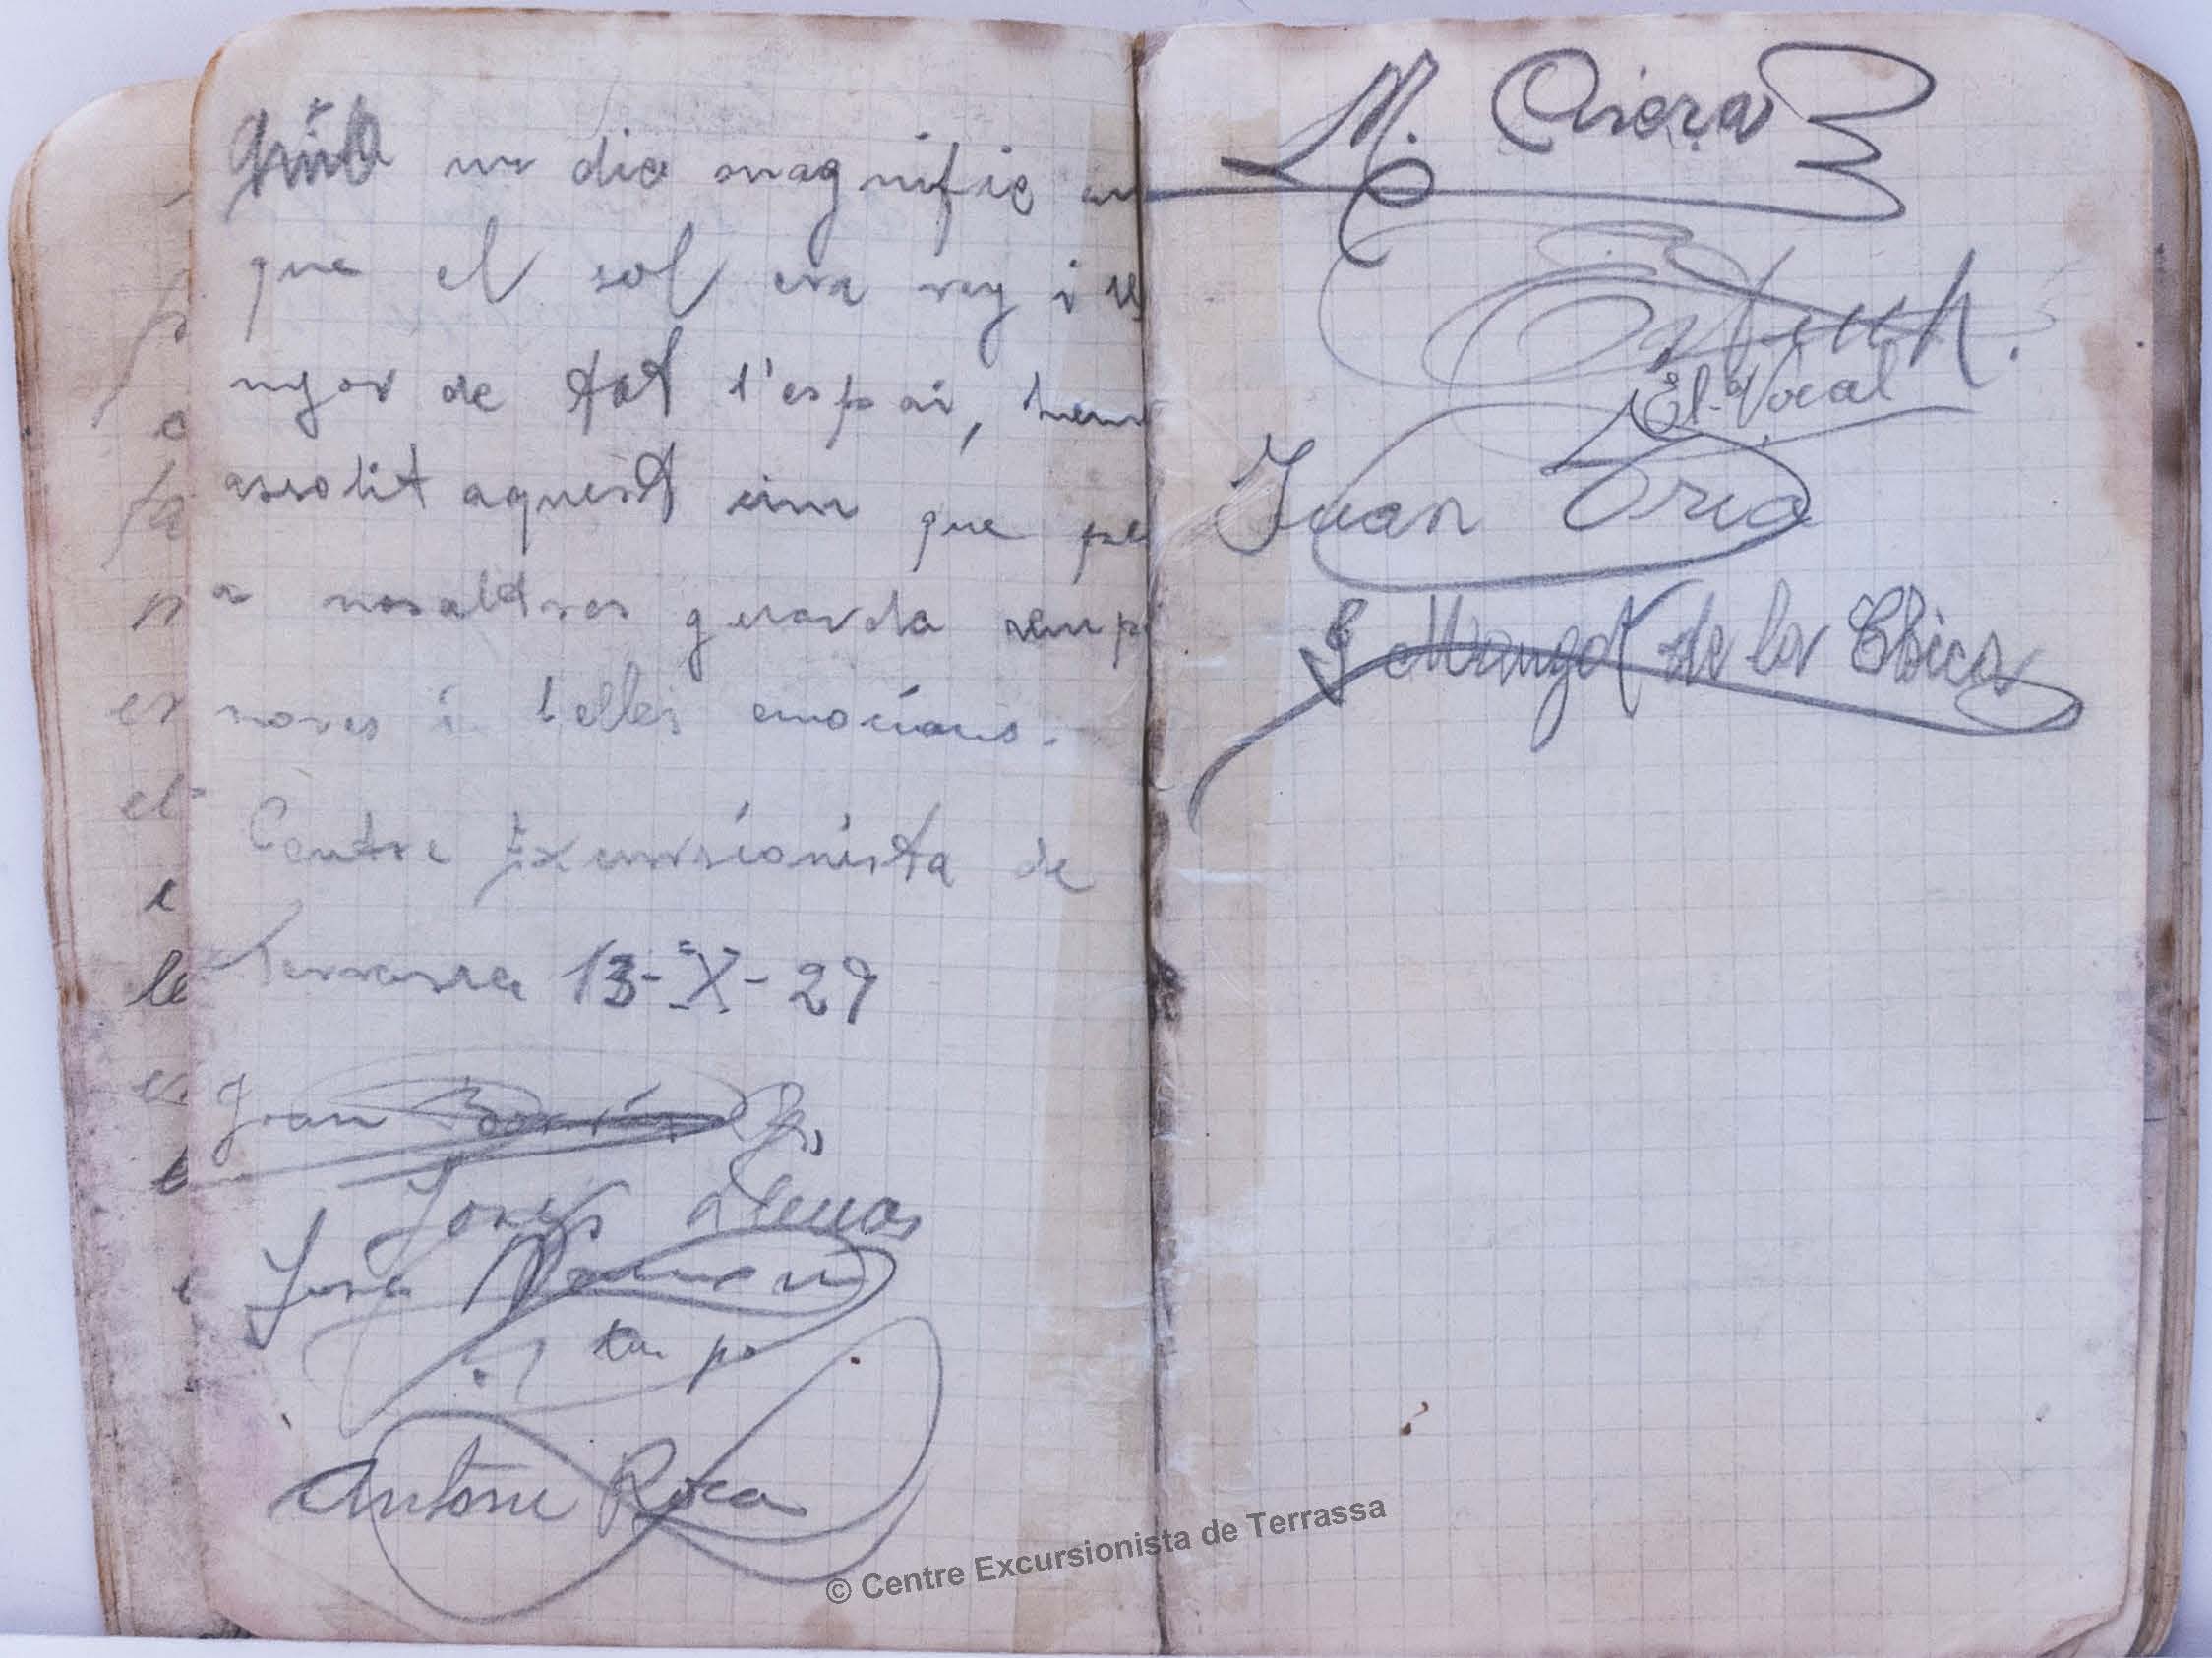 un dia magnific en
que el sol era rey i se
nyor de tot l'espai, hem
assolit aquest cim que pe
a nosaltres guarda semp
noves i belles emocions.
Centre Excursionista de
Terrassa 13-X-29
Joan
Josep
Antoni Roca
M. Cisera
El Vocal
Juan Oriol
de la Chica
© Centre Excursionista de Terrassa